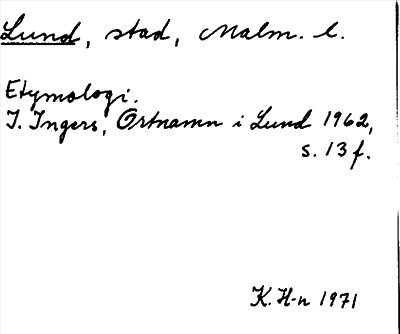 Lund, stad, Malm. l.
Etymologi.
I. Ingers, Ortnamn i Lund 1962,
s. 13 f.
K. H-n 1971